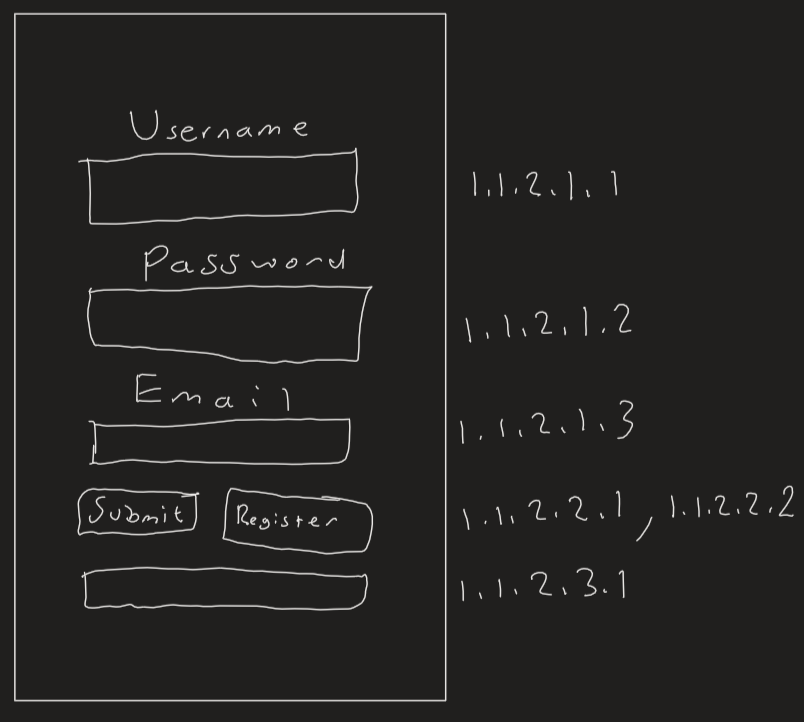 Username
1.1.2.1.1
Password
1.1.2.1.2
Email
1.1.2.1.3
Submit Register 1.1.2.2.1, 1.1.2.2.2
1.1.2.3.1